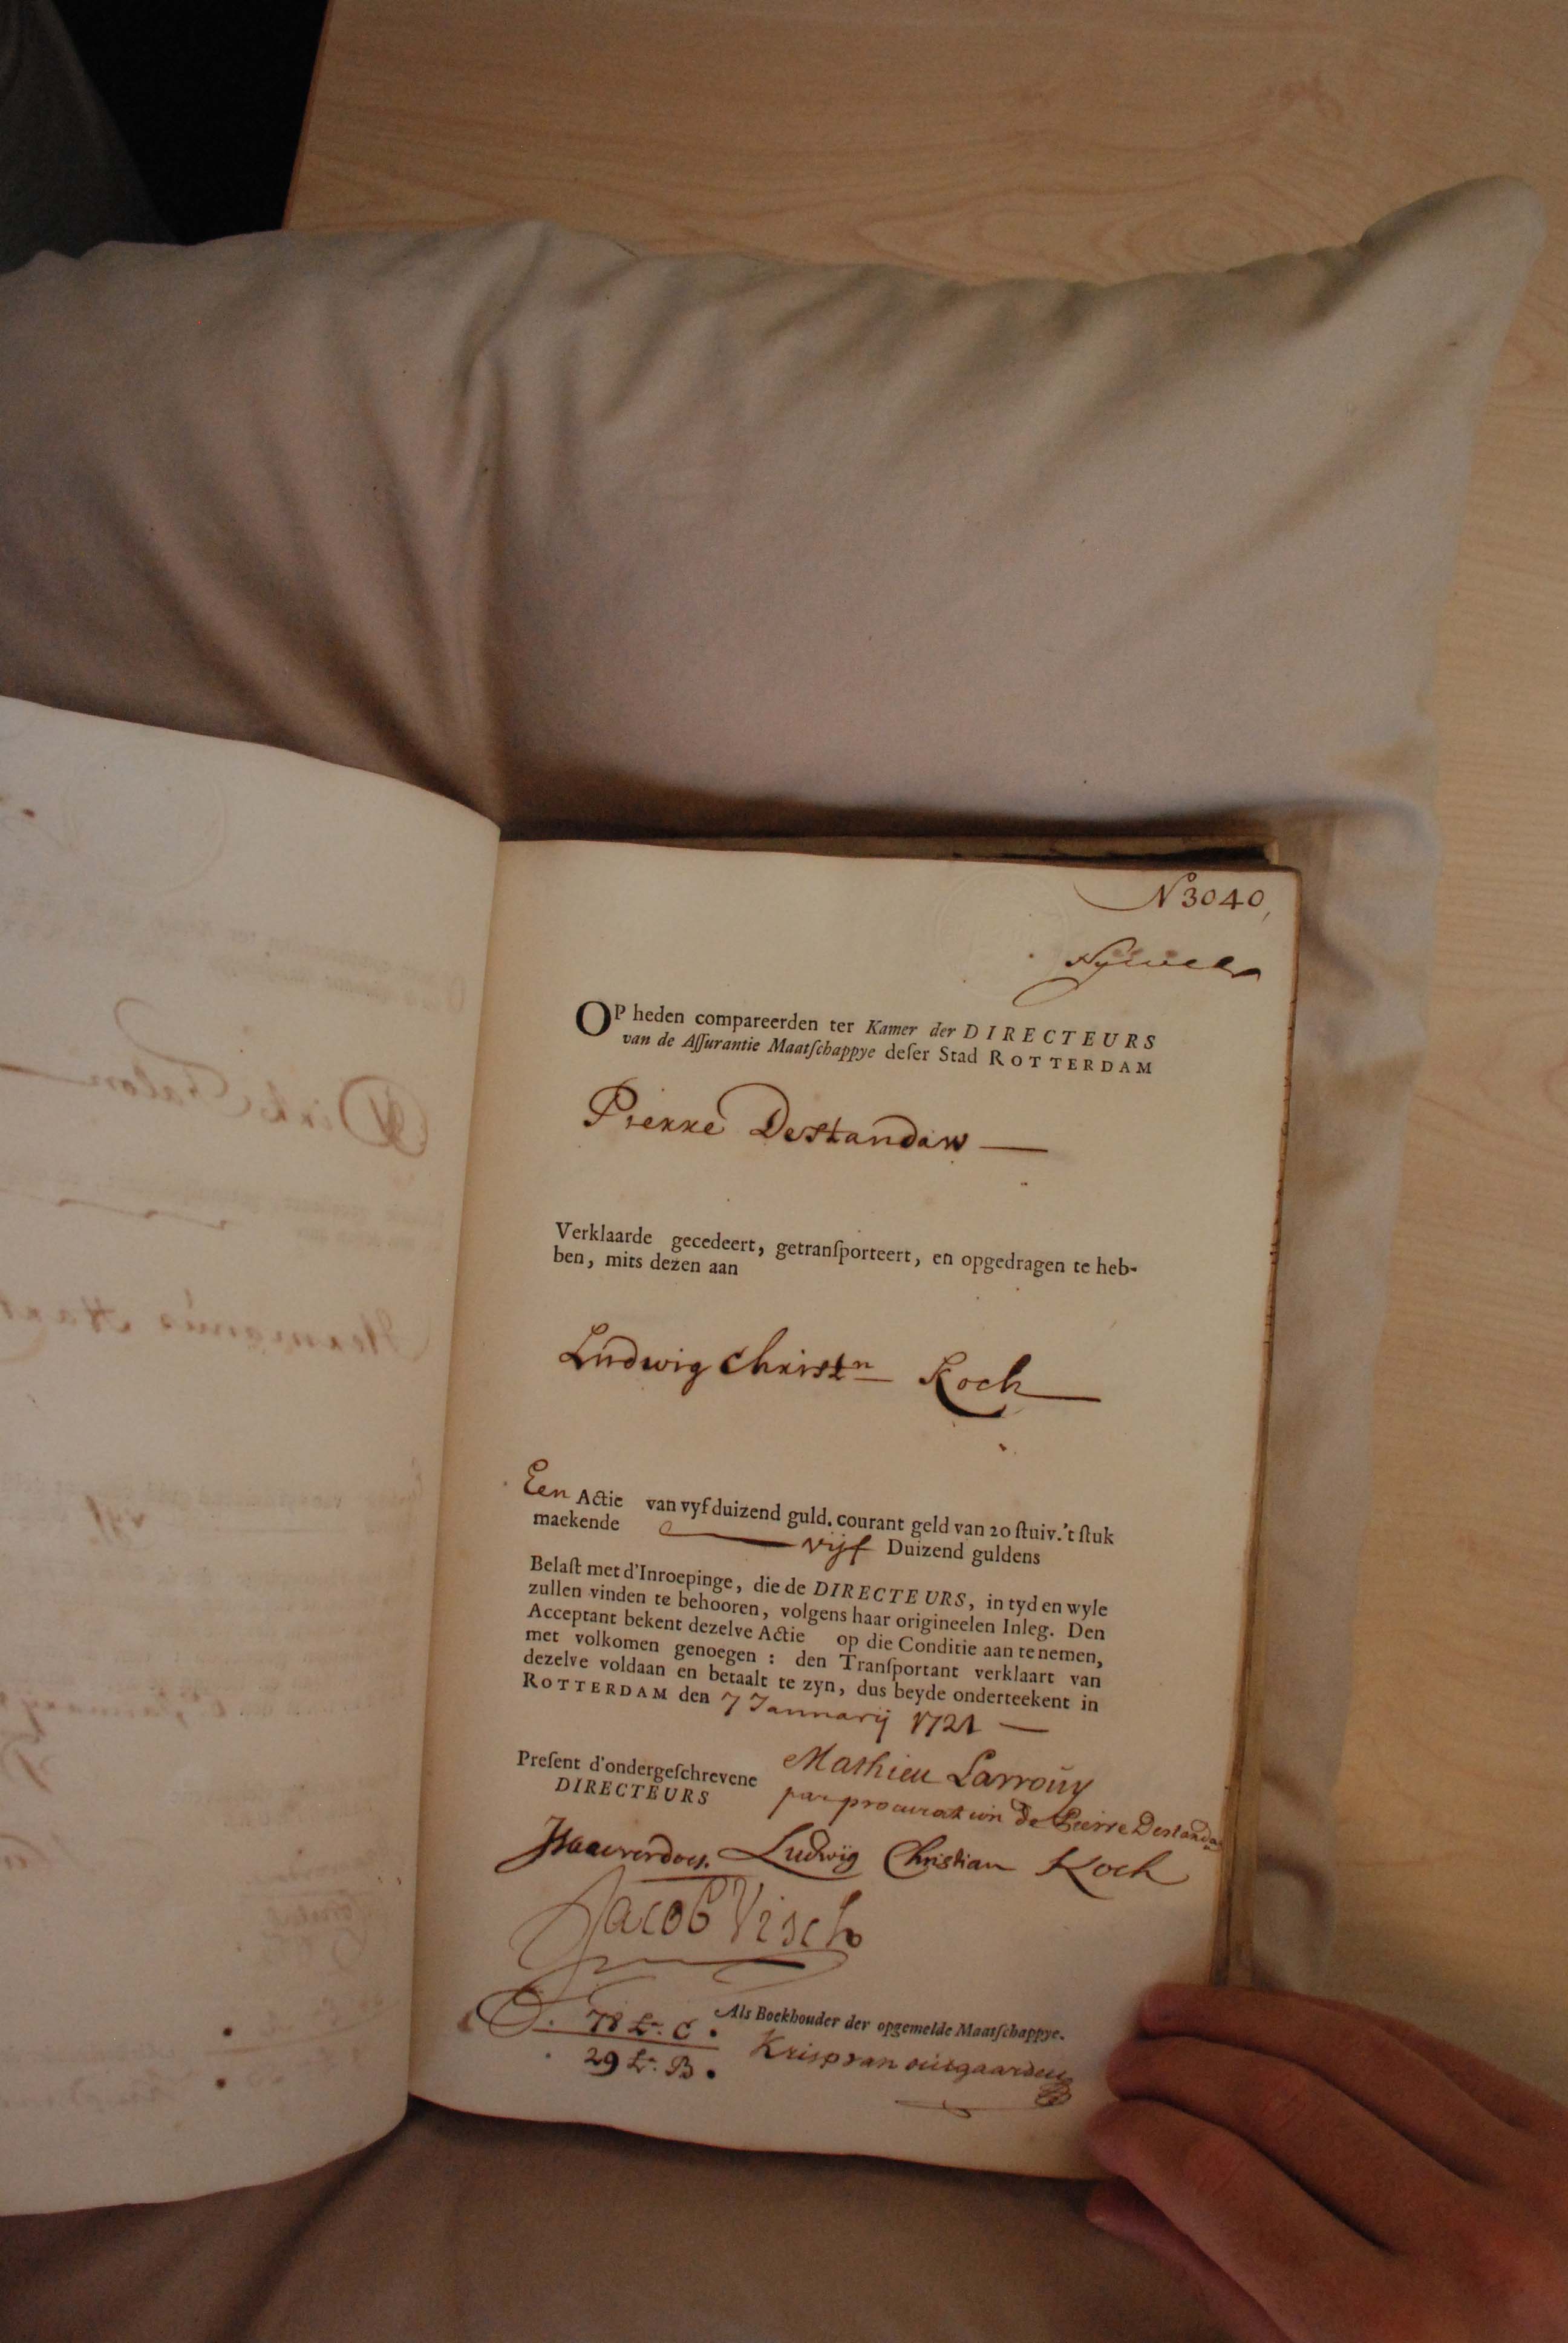 N 3040,
OP heden compareerden ter Kamer der DIRECTEURS
van de Aſſurantie Maatſchappye deſer Stad ROTTERDAM
Pierre Destandaw
Verklaarde gecedeert, getranſporteert, en opgedragen te heb-
ben, mits dezen aan
Ludwig Christn Koch
Een Actie van vyf duizend guld. courant geld van 20 ſtuiv.'t ſtuk
maekende vijf Duizend guldens
Belaſt met d'Inroepinge, die de DIRECTEURS, in tyd en wyle
zullen vinden te behooren, volgens haar origineelen Inleg. Den
Acceptant bekent dezelve Actie op die Conditie aan te nemen,
met volkomen genoegen : den Tranſportant verklaart van
dezelve voldaan en betaalt te zyn, dus beyde onderteekent in
ROTTERDAM den 7 Januarij 1721
Preſent d'ondergeſchrevene
DIRECTEURS
Mathieu Larrouy
par procuration de Pierre Destandau
Ludwig Christian Koch
Jacob Visch
Als Boekhouder der opgemelde Maatſchappye.
78 Lr. C.
29 Lr. B.
Krisp van outgaarden